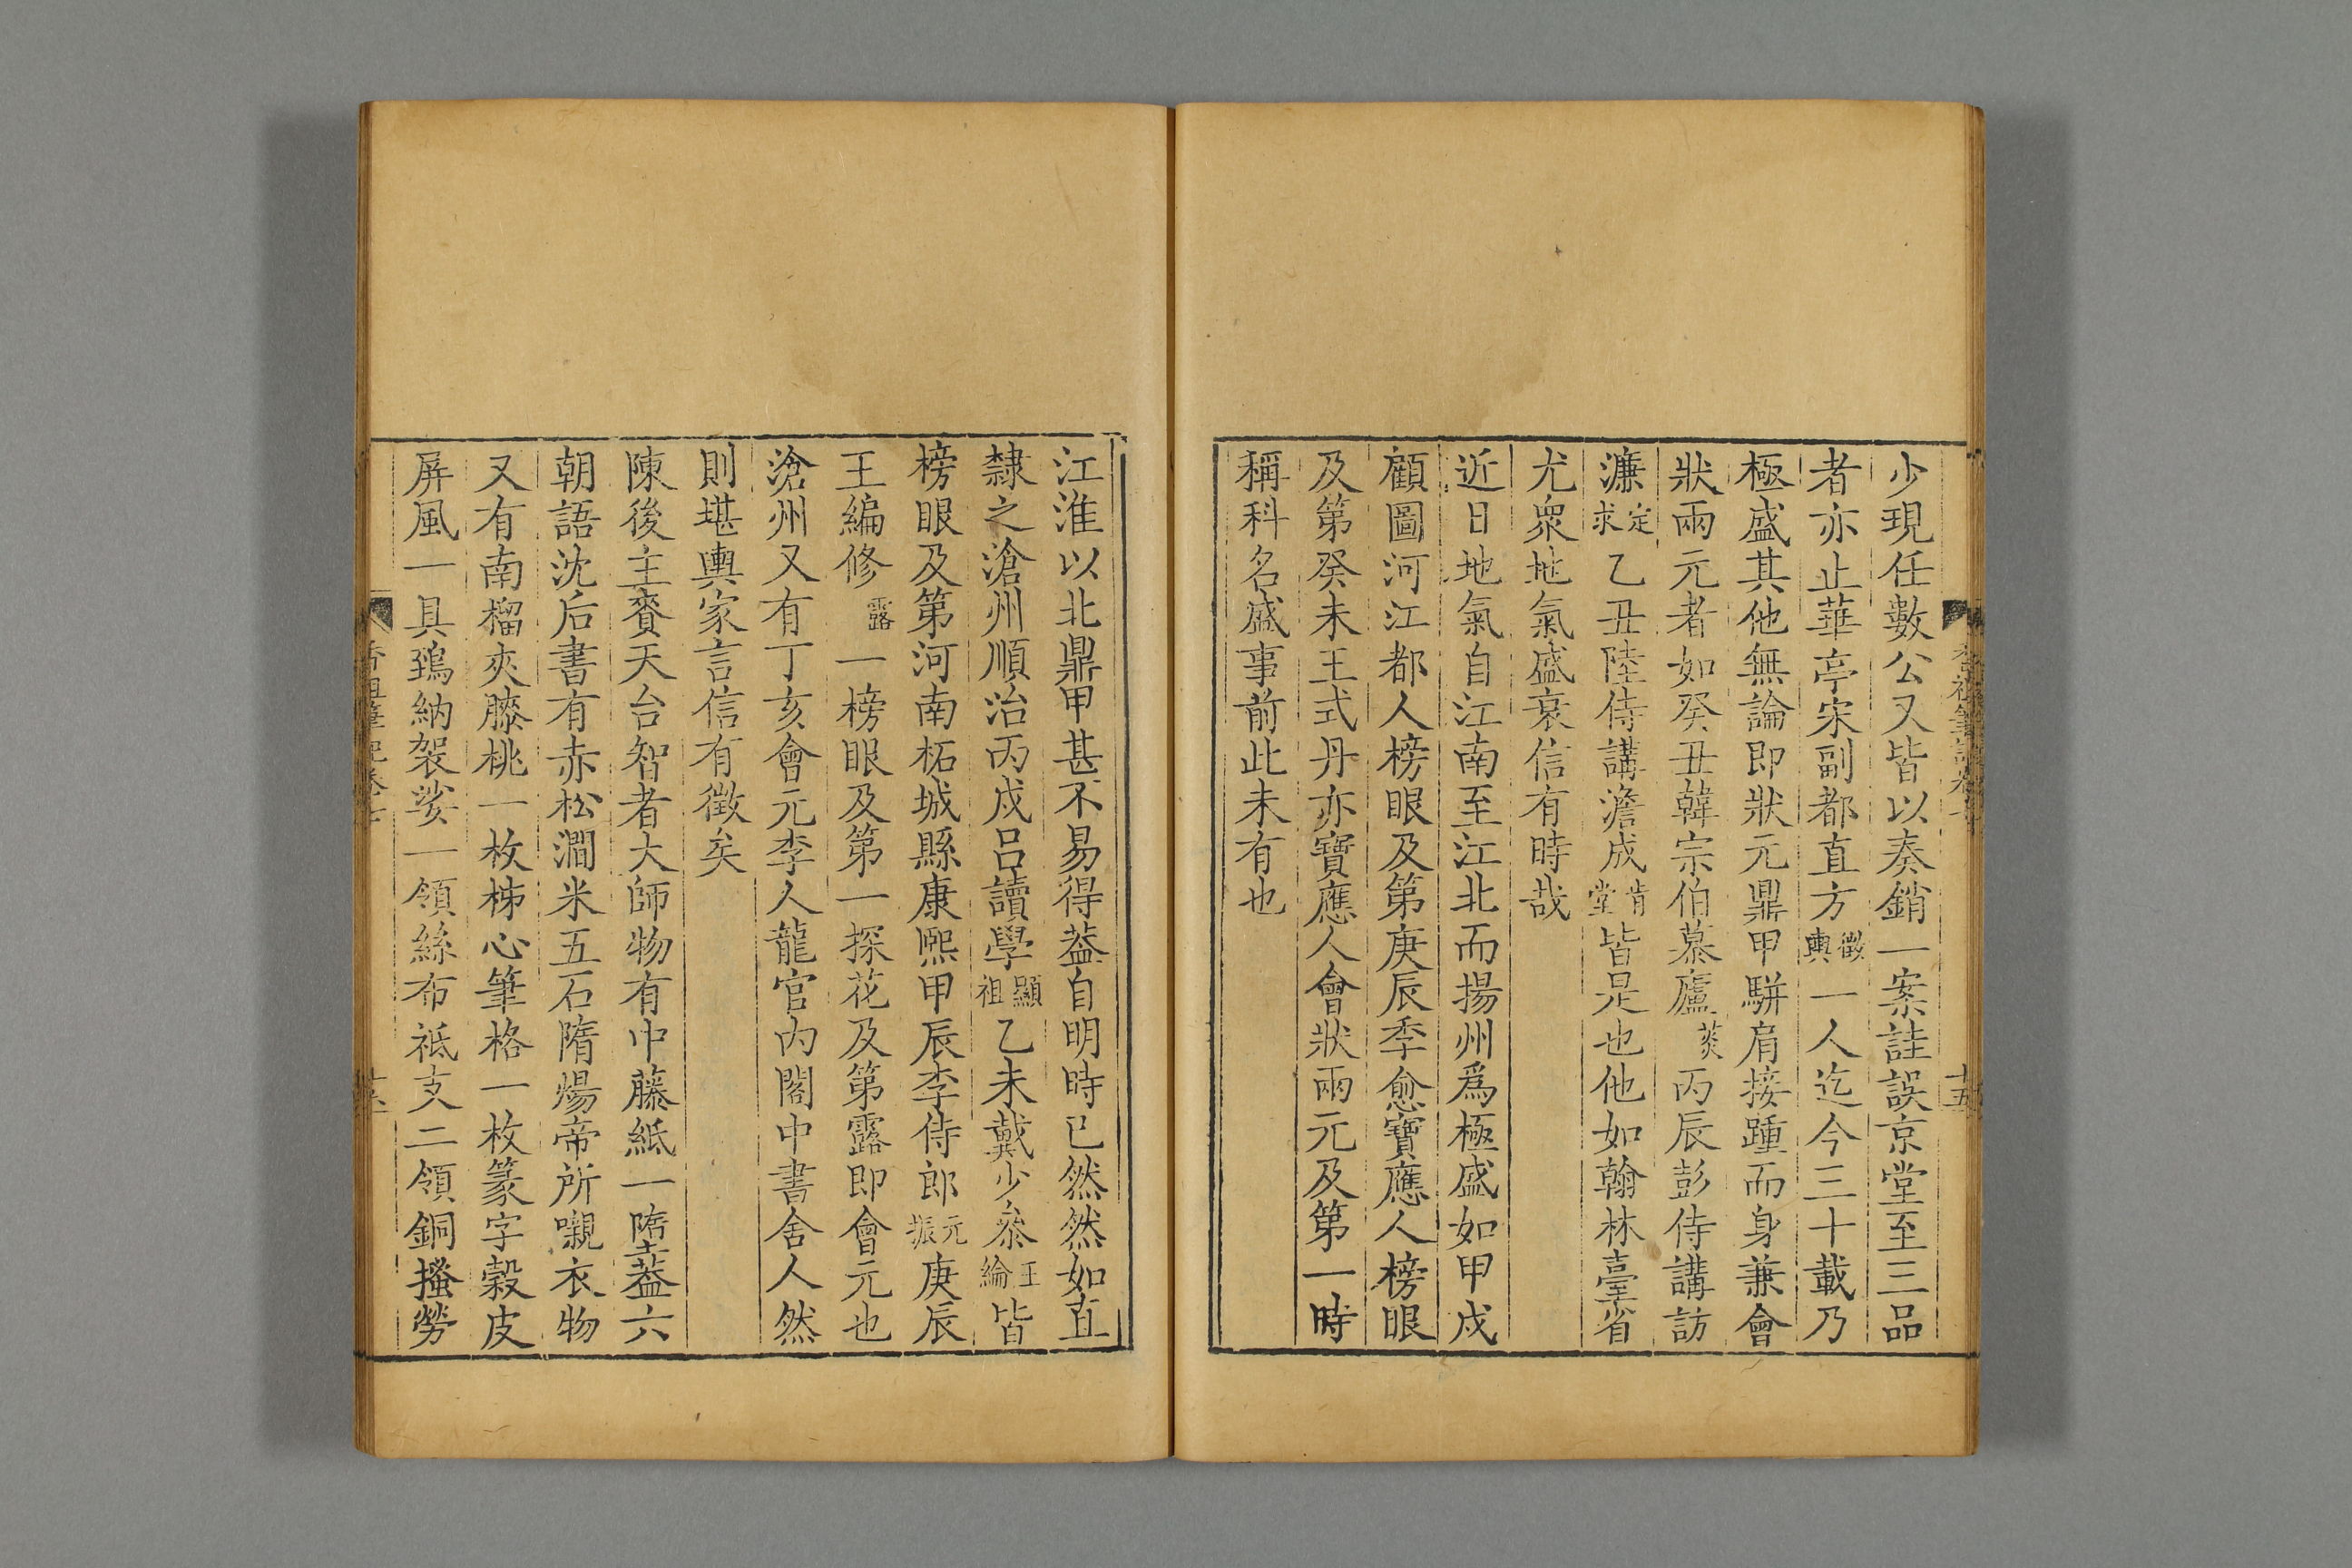 少現任數公又皆以奏銷一案詿誤京堂至三品
者亦止華亭宋副都直方徵輿一人迄今三十載乃
極盛其他無論即狀元鼎甲駢肩接踵而身兼會
狀兩元者如癸丑韓宗伯慕廬菼丙辰彭侍講訪
濂定求乙丑陸侍講澹成肯堂皆是也他如翰林臺省
尤衆地氣盛衰信有時哉
近日地氣自江南至江北而揚州爲極盛如甲戌
顧圖河江都人榜眼及第庚辰季愈寶應人榜眼
及第癸未王式丹亦寶應人會狀兩元及第一時
稱科名盛事前此未有也
江淮以北鼎甲甚不易得葢自明時已然然如直
隸之滄州順治丙戌呂讀學顯祖乙未戴少叅王綸皆
榜眼及第河南柘城縣康熙甲辰李侍郎元振庚辰
王編修露一榜眼及第一探花及第露即會元也
滄州又有丁亥會元李人龍官内閣中書舍人然
則堪輿家言信有徵矣
陳後主賚天台智者大師物有巾藤紙一墮葢六
朝語沈后書有赤松澗米五石隋煬帝所嚫衣物
又有南榴夾膝桃一枚柹心筆格一枚篆字榖皮
屏風一具鵄納袈裟一領絲布祗支二領銅搔勞
香祖筆記卷七
十五